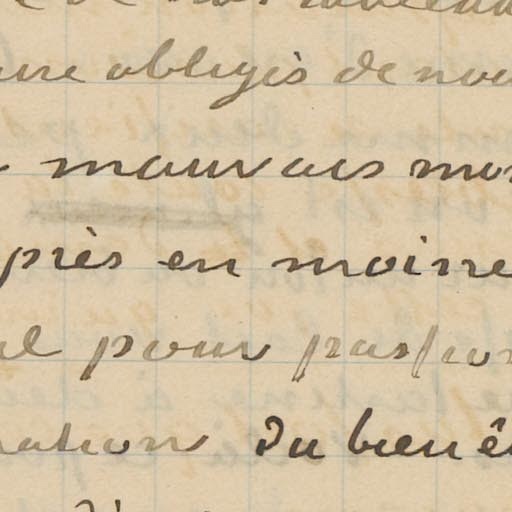 obligés de nou
mauvais mo
près en moin
pour passer
ration du bien ê